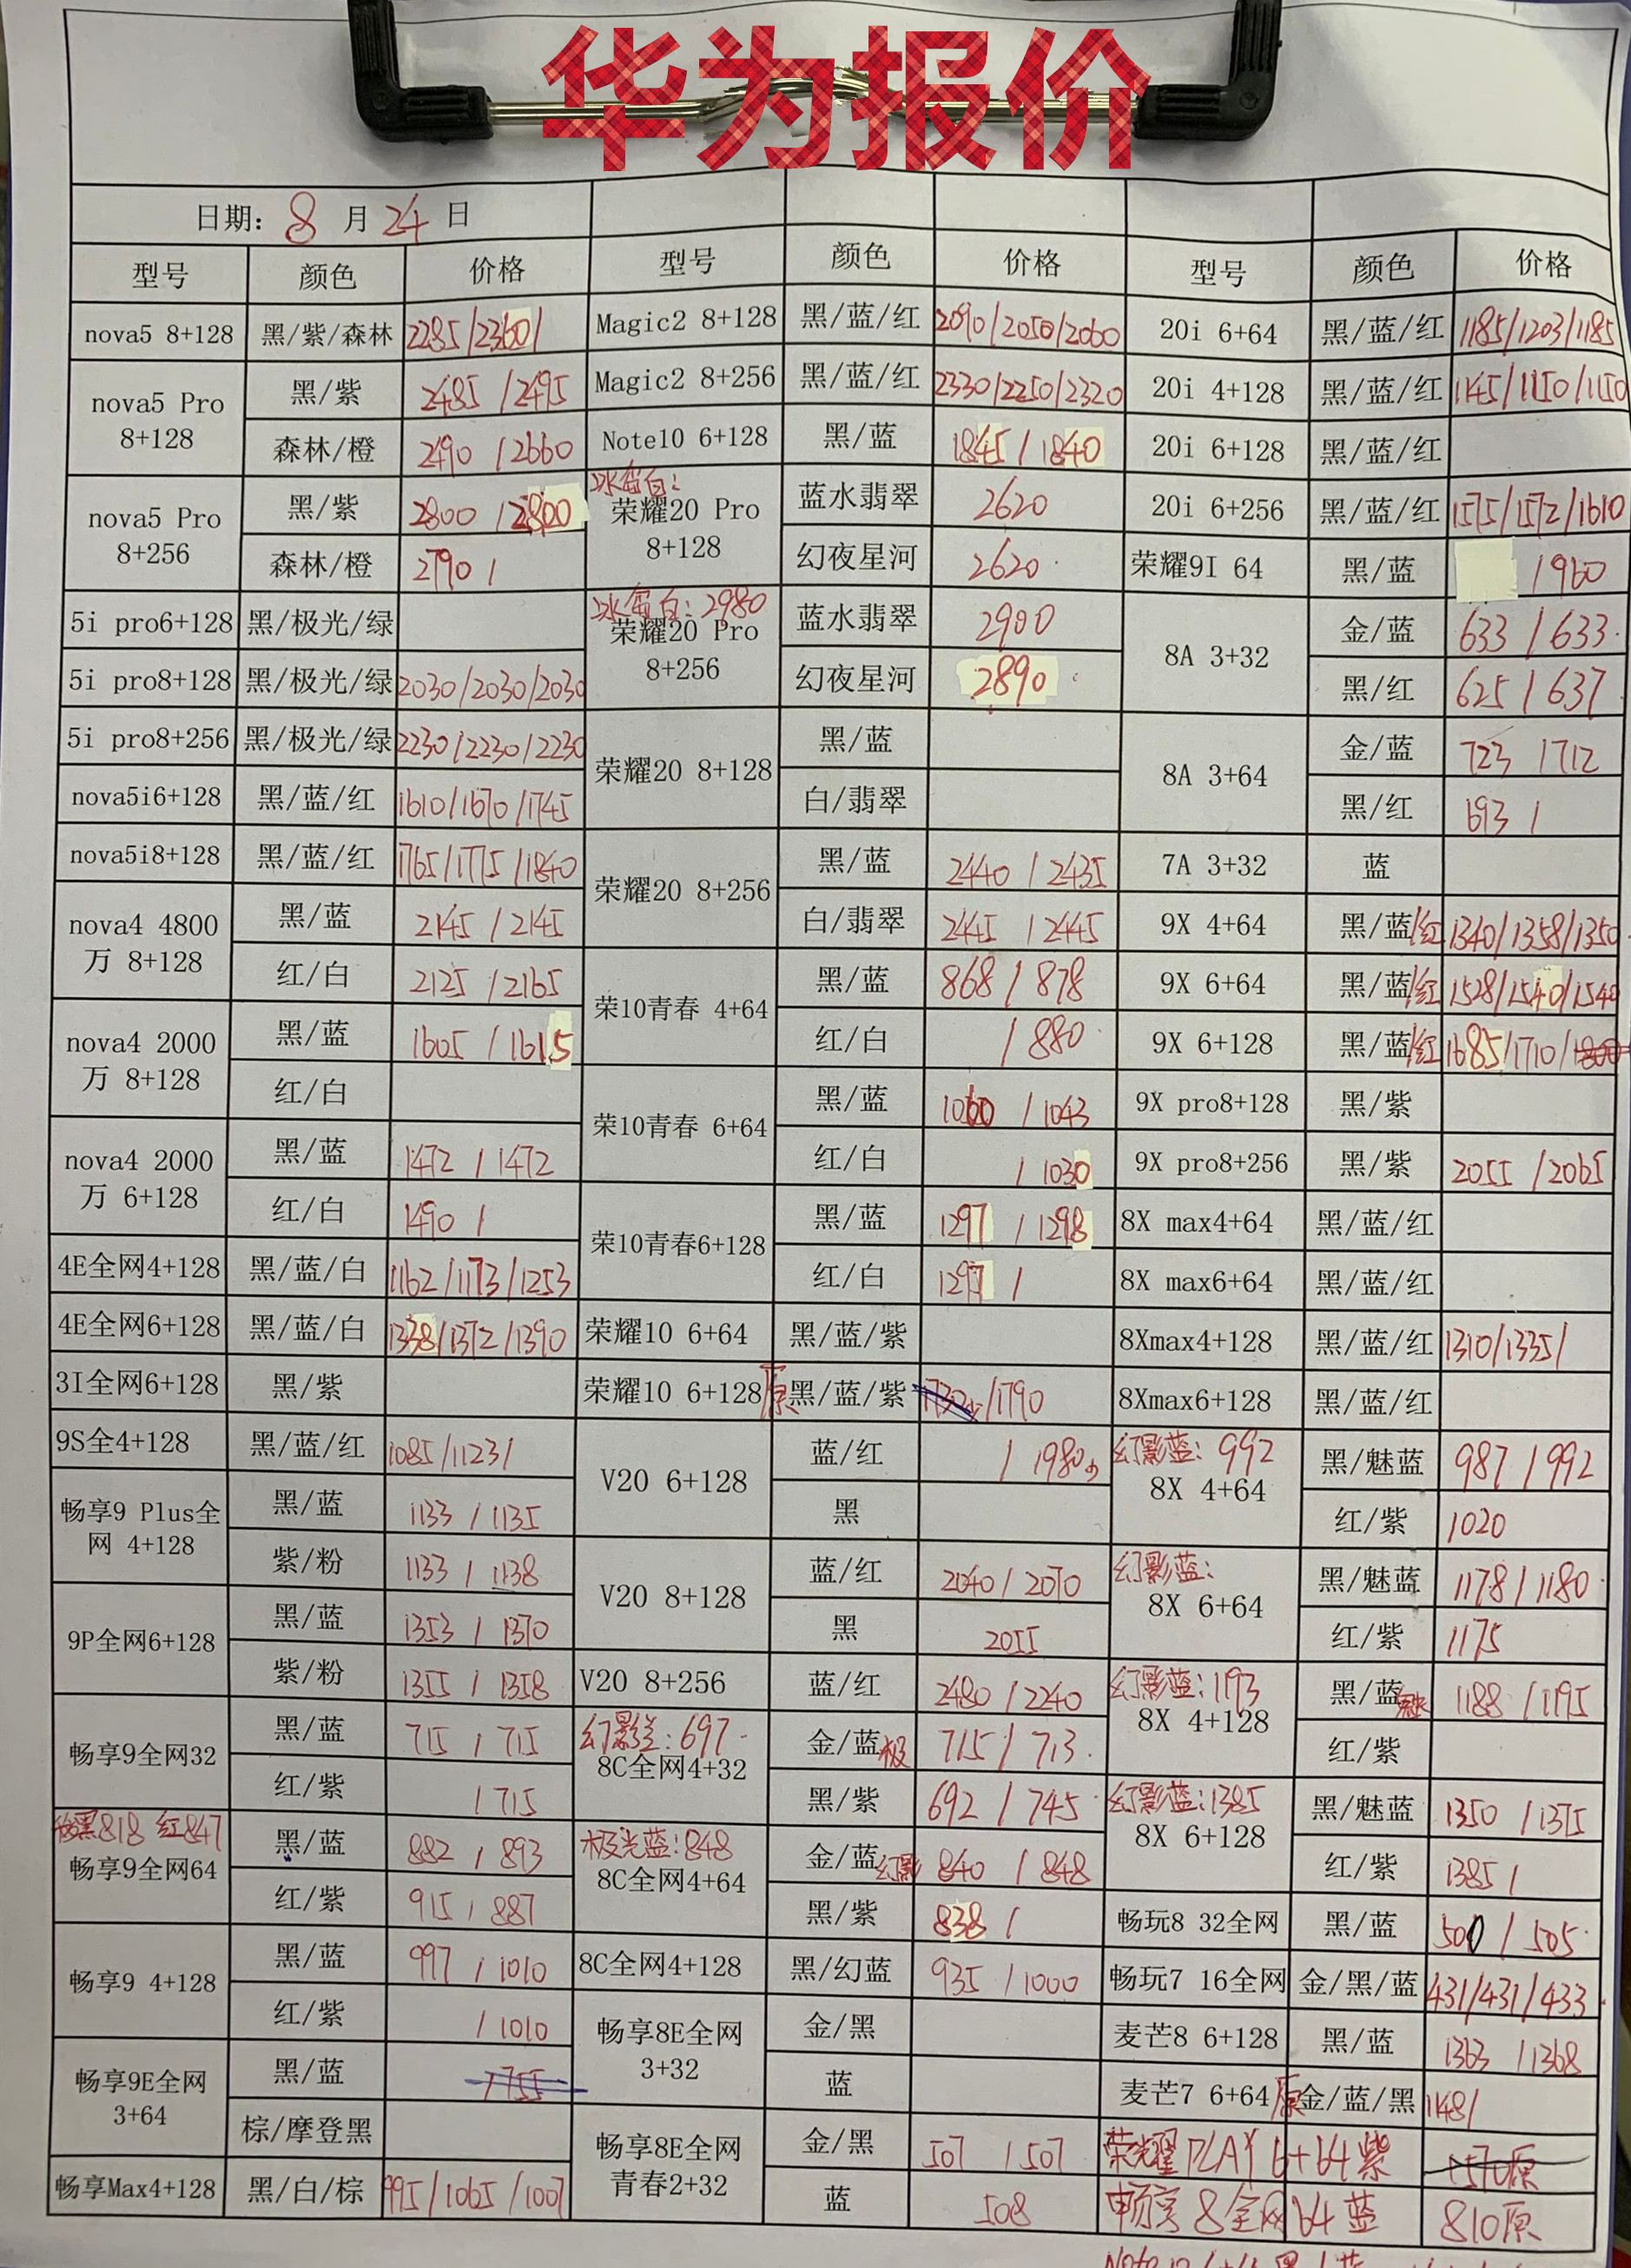 华为报价
日期: 8 月 24 日
型号 颜色 价格 型号 颜色 价格 型号 颜色 价格
nova5 8+128 黑/紫/森林 2285/2360/ Magic2 8+128 黑/蓝/红 2090/2050/2060 20i 6+64 黑/蓝/红 1185/1203/1185
nova5 Pro 8+128 黑/紫 2485/2495 Magic2 8+256 黑/蓝/红 2330/2250/2320 20i 4+128 黑/蓝/红 1145/1150/1150
森林/橙 2490/2660 Note10 6+128 黑/蓝 1845/1840 20i 6+128 黑/蓝/红
nova5 Pro 8+256 黑/紫 2800/2800 冰蛋白: 荣耀20 Pro 8+128 蓝水翡翠 2620 20i 6+256 黑/蓝/红 1575/1572/1610
森林/橙 2790/ 幻夜星河 2620 荣耀9I 64 黑/蓝 /960
5i pro6+128 黑/极光/绿 冰蛋白: 2980 荣耀20 Pro 8+256 蓝水翡翠 2900 8A 3+32 金/蓝 633/633
5i pro8+128 黑/极光/绿 2030/2030/2030 幻夜星河 2890 黑/红 625/637
5i pro8+256 黑/极光/绿 2230/2230/2230 荣耀20 8+128 黑/蓝 8A 3+64 金/蓝 723/712
nova5i6+128 黑/蓝/红 1610/1670/1745 白/翡翠 黑/红 693/
nova5i8+128 黑/蓝/红 1765/1775/1840 荣耀20 8+256 黑/蓝 2440/2435 7A 3+32 蓝
nova4 4800万 8+128 黑/蓝 2145/2145 白/翡翠 2445/2445 9X 4+64 黑/蓝/红 1340/1358/1350
红/白 2125/2165 荣10青春 4+64 黑/蓝 868/878 9X 6+64 黑/蓝/红 1528/1540/1540
nova4 2000万 8+128 黑/蓝 1605/1615 红/白 /880 9X 6+128 黑/蓝/红 1685/1710/
红/白 荣10青春 6+64 黑/蓝 1060/1043 9X pro8+128 黑/紫
nova4 2000万 6+128 黑/蓝 1472/1472 红/白 /1030 9X pro8+256 黑/紫 2055/2065
红/白 1490/ 荣10青春6+128 黑/蓝 1297/1298 8X max4+64 黑/蓝/红
4E全网4+128 黑/蓝/白 1162/1173/1253 红/白 1297/ 8X max6+64 黑/蓝/红
4E全网6+128 黑/蓝/白 1338/1372/1390 荣耀10 6+64 黑/蓝/紫 8Xmax4+128 黑/蓝/红 1310/1335/
3I全网6+128 黑/紫 荣耀10 6+128原 黑/蓝/紫 /1790 8Xmax6+128 黑/蓝/红
9S全4+128 黑/蓝/红 1085/1123/ V20 6+128 蓝/红 /1980 幻影蓝: 992 8X 4+64 黑/魅蓝 987/992
畅享9 Plus全网 4+128 黑/蓝 1133/1135 黑 红/紫 1020
紫/粉 1133/1138 V20 8+128 蓝/红 2040/2070 幻影蓝: 8X 6+64 黑/魅蓝 1178/1180
9P全网6+128 黑/蓝 1353/1370 黑 2055 红/紫 1175
紫/粉 1355/1358 V20 8+256 蓝/红 2480/2240 幻影蓝: 1193 8X 4+128 黑/蓝 1188/1195
畅享9全网32 黑/蓝 715/715 幻影兰: 697 8C全网4+32 金/蓝极 715/713 红/紫
红/紫 /715 黑/紫 692/745 幻影蓝: 1385 8X 6+128 黑/魅蓝 1350/1375
黑818 红847 畅享9全网64 黑/蓝 882/893 极光蓝: 848 8C全网4+64 金/蓝幻影 840/848 红/紫 1385/
红/紫 915/887 黑/紫 838/ 畅玩8 32全网 黑/蓝 500/505
畅享9 4+128 黑/蓝 997/1010 8C全网4+128 黑/幻蓝 935/1000 畅玩7 16全网 金/黑/蓝 431/431/433
红/紫 /1010 畅享8E全网 3+32 金/黑 麦芒8 6+128 黑/蓝 1363/1368
畅享9E全网 3+64 黑/蓝 /755 蓝 麦芒7 6+64原 金/蓝/黑 1148/
棕/摩登黑 畅享8E全网青春2+32 金/黑 507/507 荣耀PLAY 6+64 紫 1570原
畅享Max4+128 黑/白/棕 995/1065/1007 蓝 508 畅享8全网 64 蓝 810原